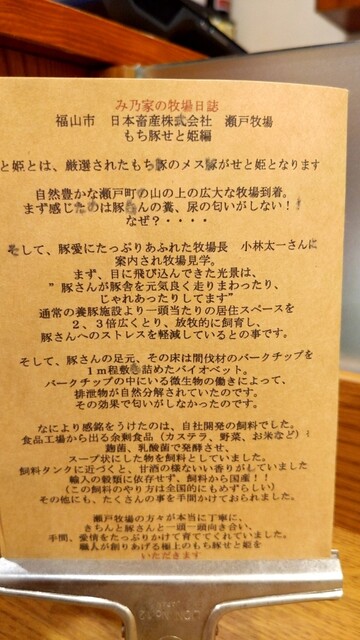 み乃家の牧場日誌
福山市　日本畜産株式会社　瀬戸牧場
もち豚せと姫編
と姫とは、厳選されたもち豚のメス豚がせと姫となります
自然豊かな瀬戸町の山の上の広大な牧場到着。
まず感じたのは豚さんの糞、尿の匂いがしない！！
なぜ？・・・・
そして、豚愛にたっぷりあふれた牧場長　小林太一さんに
案内され牧場見学。
まず、目に飛び込んできた光景は、
”豚さんが豚舎を元気良く走りまわったり、
じゃれあったりしてます”
通常の養豚施設より一頭当たりの居住スペースを
２、３倍広くとり、放牧的に飼育し、
豚さんへのストレスを軽減しているとの事です。
そして、豚さんの足元、その床は間伐材のバークチップを
１ｍ程敷き詰めたバイオベット。
バークチップの中にいる微生物の働きによって、
排泄物が自然分解されていたのです。
その効果で匂いがしなかったのです。
なにより感銘をうけたのは、自社開発の飼料でした。
食品工場から出る余剰食品（カステラ、野菜、お米など）を
麹菌、乳酸菌で発酵させ、
スープ状にした物を飼料としていました。
飼料タンクに近づくと、甘酒の様ないい香りがもしていました
輸入の穀類に依存せず、飼料から国産！！
（この飼料のやり方は全国的にもめずらしい）
その他にも、たくさんの事を手間かけておられました。
瀬戸牧場の方々が本当に丁寧に、
きちんと豚さんと一頭一頭向き合い、
手間、愛情をたっぷりかけて育ててくれていました。
職人が創りあげる極上のもち豚せと姫を
いただきます